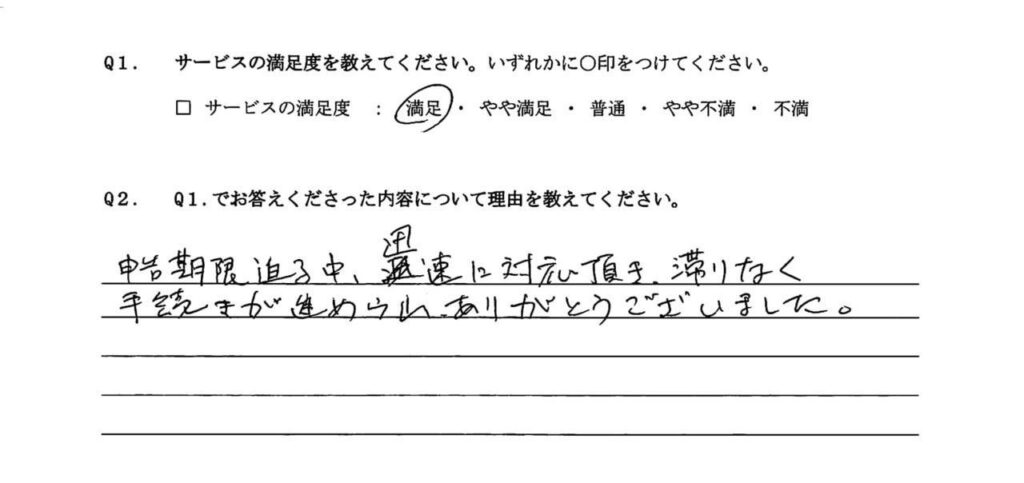 Q1. サービスの満足度を教えてください。いずれかに〇印をつけてください。
□ サービスの満足度 : 満足・ やや満足 ・ 普通 ・ やや不満 ・ 不満
Q2. Q1.でお答えくださった内容について理由を教えてください。
申告期限迫る中、迅速に対応頂き、滞りなく
手続きが進められ、ありがとうございました。